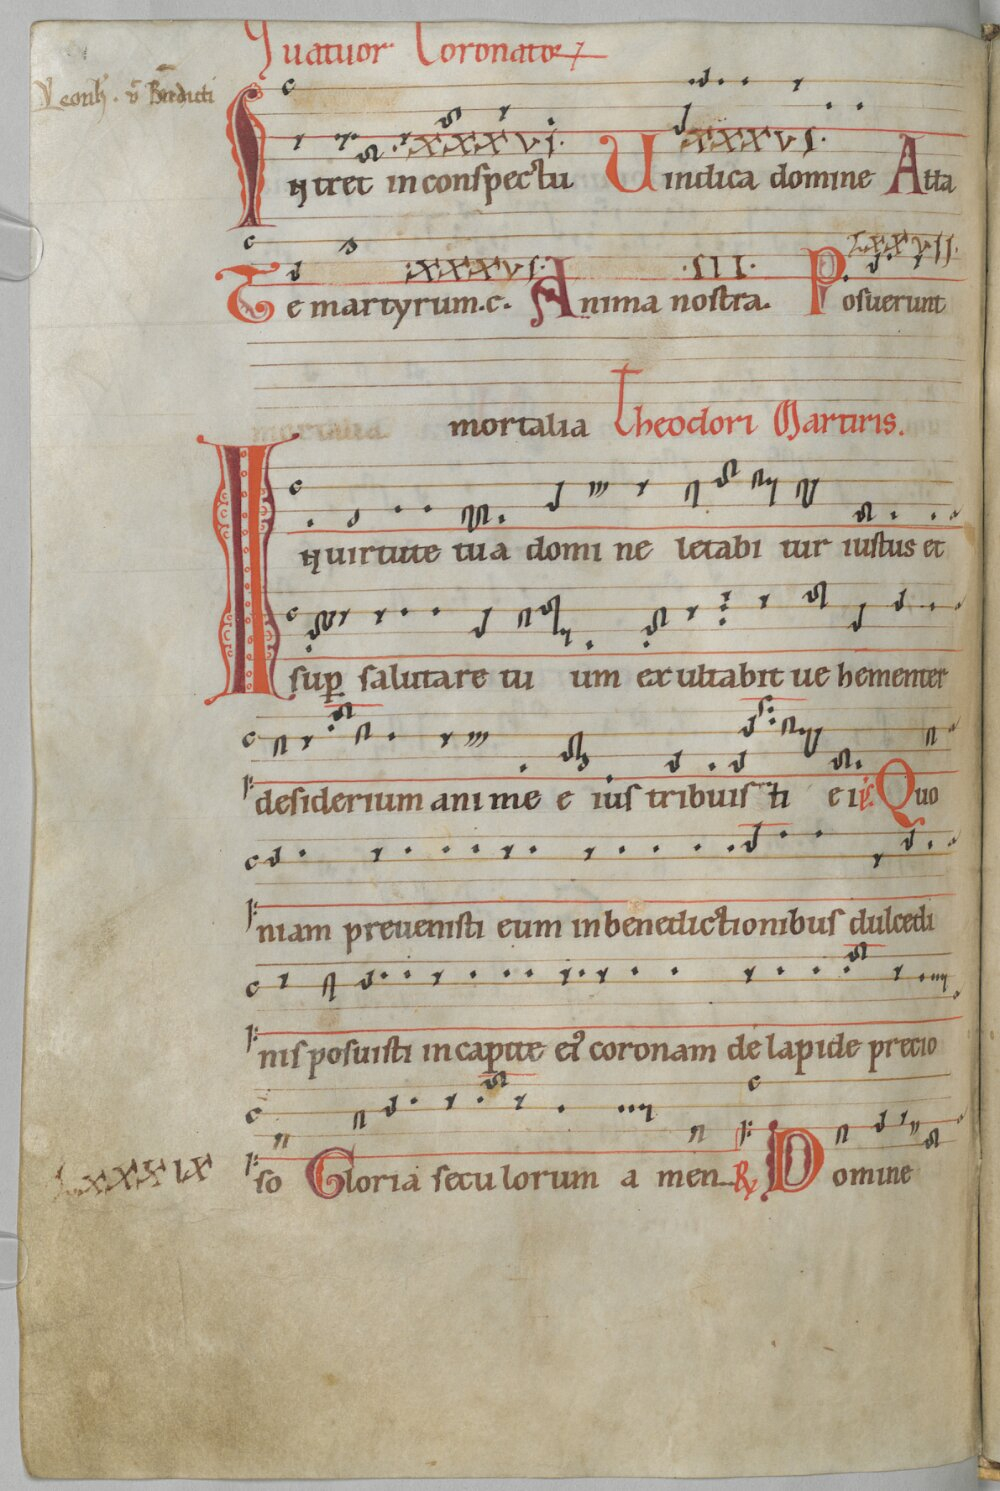 Quatuor Coronatoꝝ
Leonh. v͞ Bndicti
.XXXVI. XXXVI.
Intret in conspectu Uindica domine Atta
.XXXVI. .III. LXXVII.
Te martyrum.c. Anima nostra. Posuerunt
mortalia Theodori Martiris.
In uirtute tua domi ne letabi tur iustus et
sup salutare tu um exultabit ue hementer
desiderium anime e ius tribuis ti ei is. Quo
niam preuenisti eum in benedictionibus dulcedi
nis posuisti in capite ei coronam de lapide precio
LXXXIX
so Gloria seculorum a men ℟ Domine